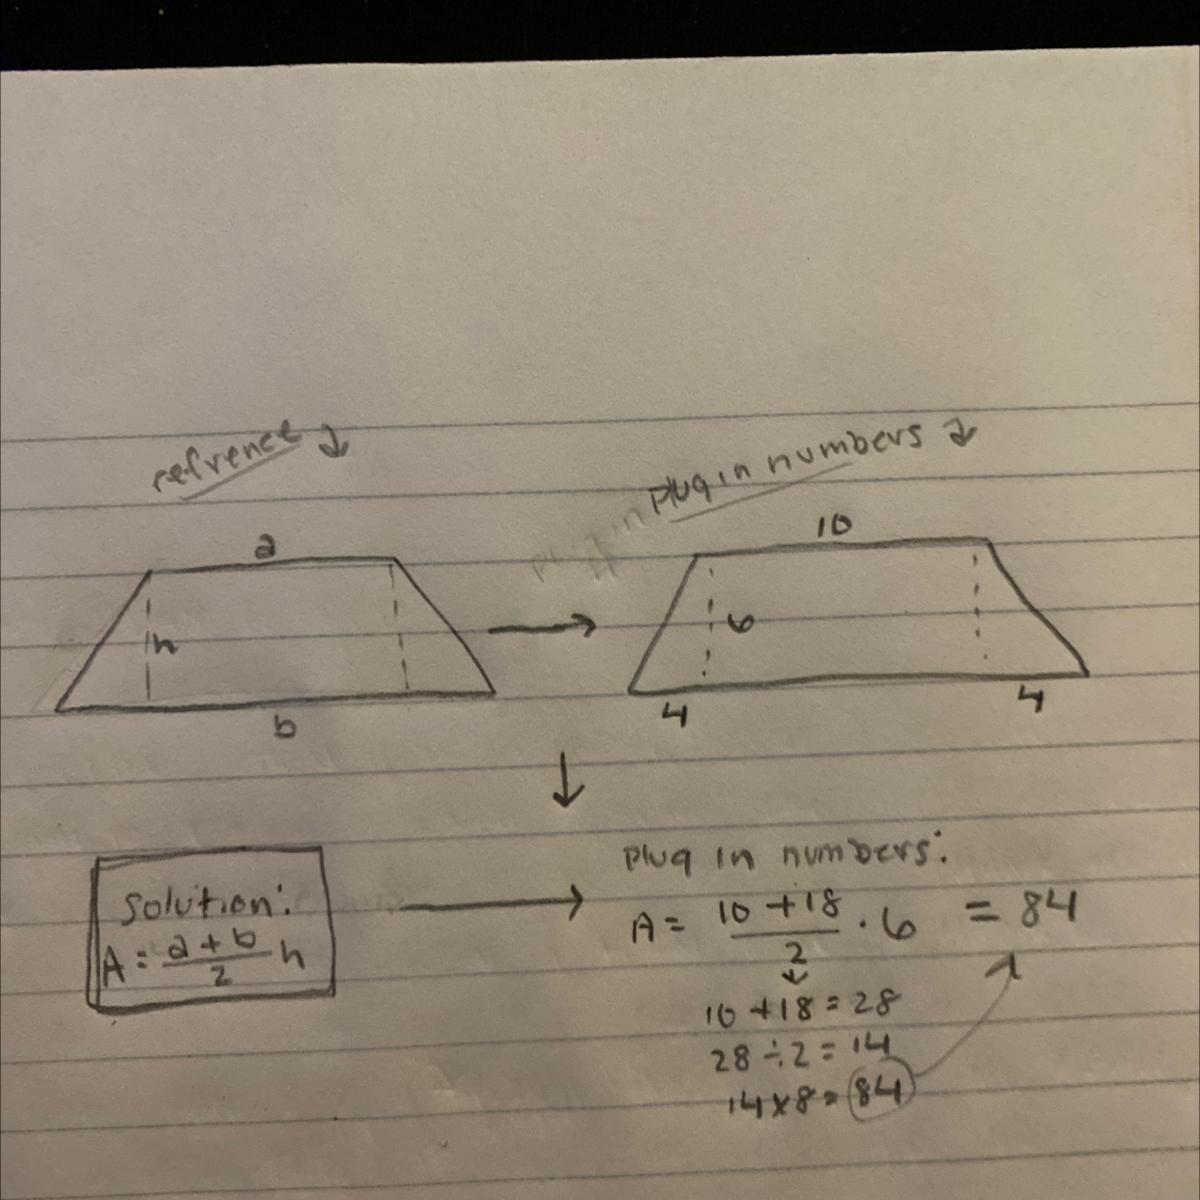 refrence ↓
plug in numbers ↓
a
h
b
10
6
4
4
solution:
A = a + b / 2 h
plug in numbers:
A = 10 + 18 / 2 · 6 = 84
10 + 18 = 28
28 ÷ 2 = 14
14 x 8 = 84